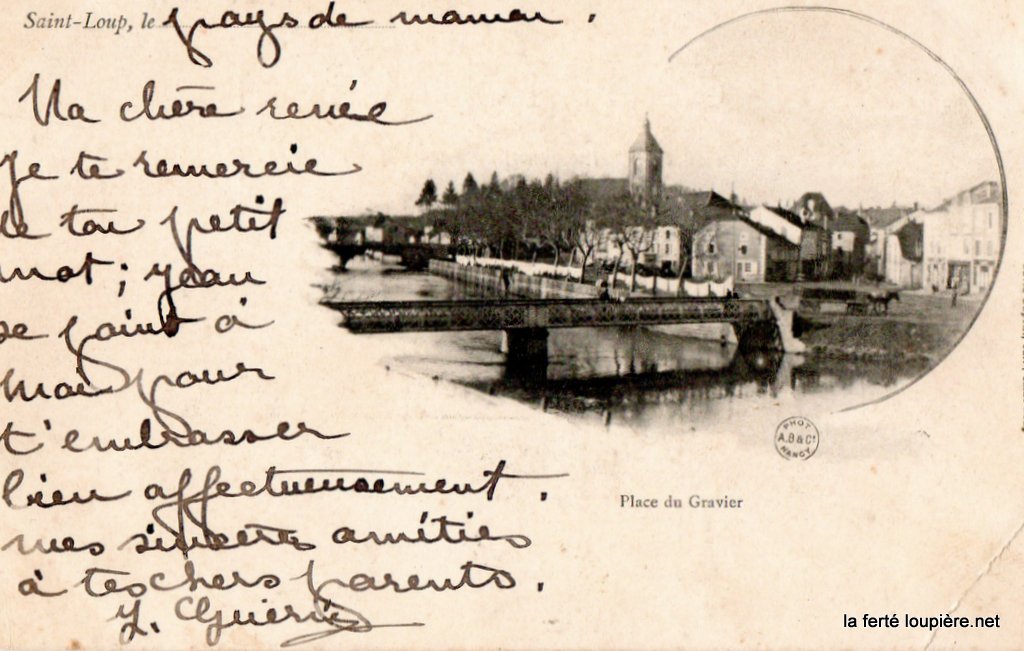 Saint-Loup, le pays de maman.
Ma chère renée
Je te remercie
de ton petit
mot ; yean
se joint à
Moi pour
t'embrasser
bien affectueusement.
mes sincères amitiés
à tes chers parents.
Y. Guérin
PHOT
A.B & Cie
NANCY
Place du Gravier
la ferté loupière.net